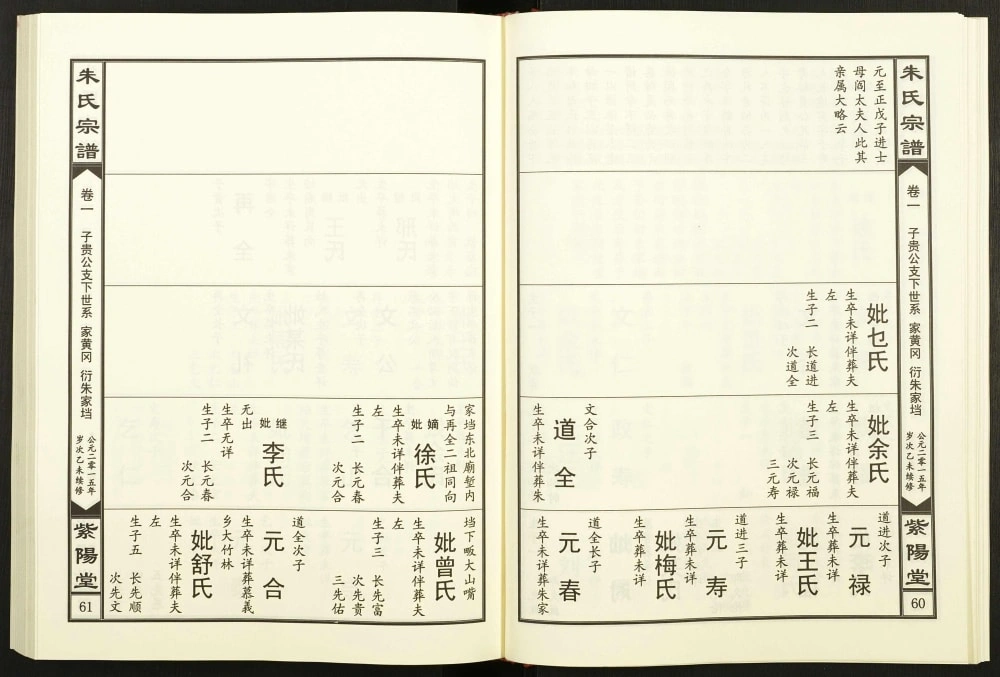 朱氏宗譜
卷一 子贵公支下世系 家黄冈 衍朱家垱
公元二零一五年
岁次乙未续修
紫陽堂
60
元至正戊子进士
母阎太夫人此其
亲属大略云
妣乜氏
生卒未详伴葬夫
左
生子二 长道进
次道全
妣余氏
生卒未详伴葬夫
左
生子三 长元福
次元禄
三元寿
文合次子
道全
生卒未详伴葬朱
道进次子
元禄
生卒葬未详
妣王氏
生卒葬未详
道进三子
元寿
生卒葬未详
妣梅氏
生卒葬未详
道全长子
元春
生卒未详伴葬朱家
家垱东北廟堑内
与再全二祖同向
嫡妣徐氏
生卒未详伴葬夫
左
生子二 长元春
次元合
继妣李氏
无出
生卒无详
生子二 长元春
次元合
垱下畈大山嘴
妣曾氏
生卒未详伴葬夫
左
生子三 长先富
次先贵
三先佑
道全次子
元合
生卒未详葬慕義
乡大竹林
妣舒氏
生卒未详伴葬夫
左
生子五 长先顺
次先文
朱氏宗譜
卷一 子贵公支下世系 家黄冈 衍朱家垱
公元二零一五年
岁次乙未续修
紫陽堂
61